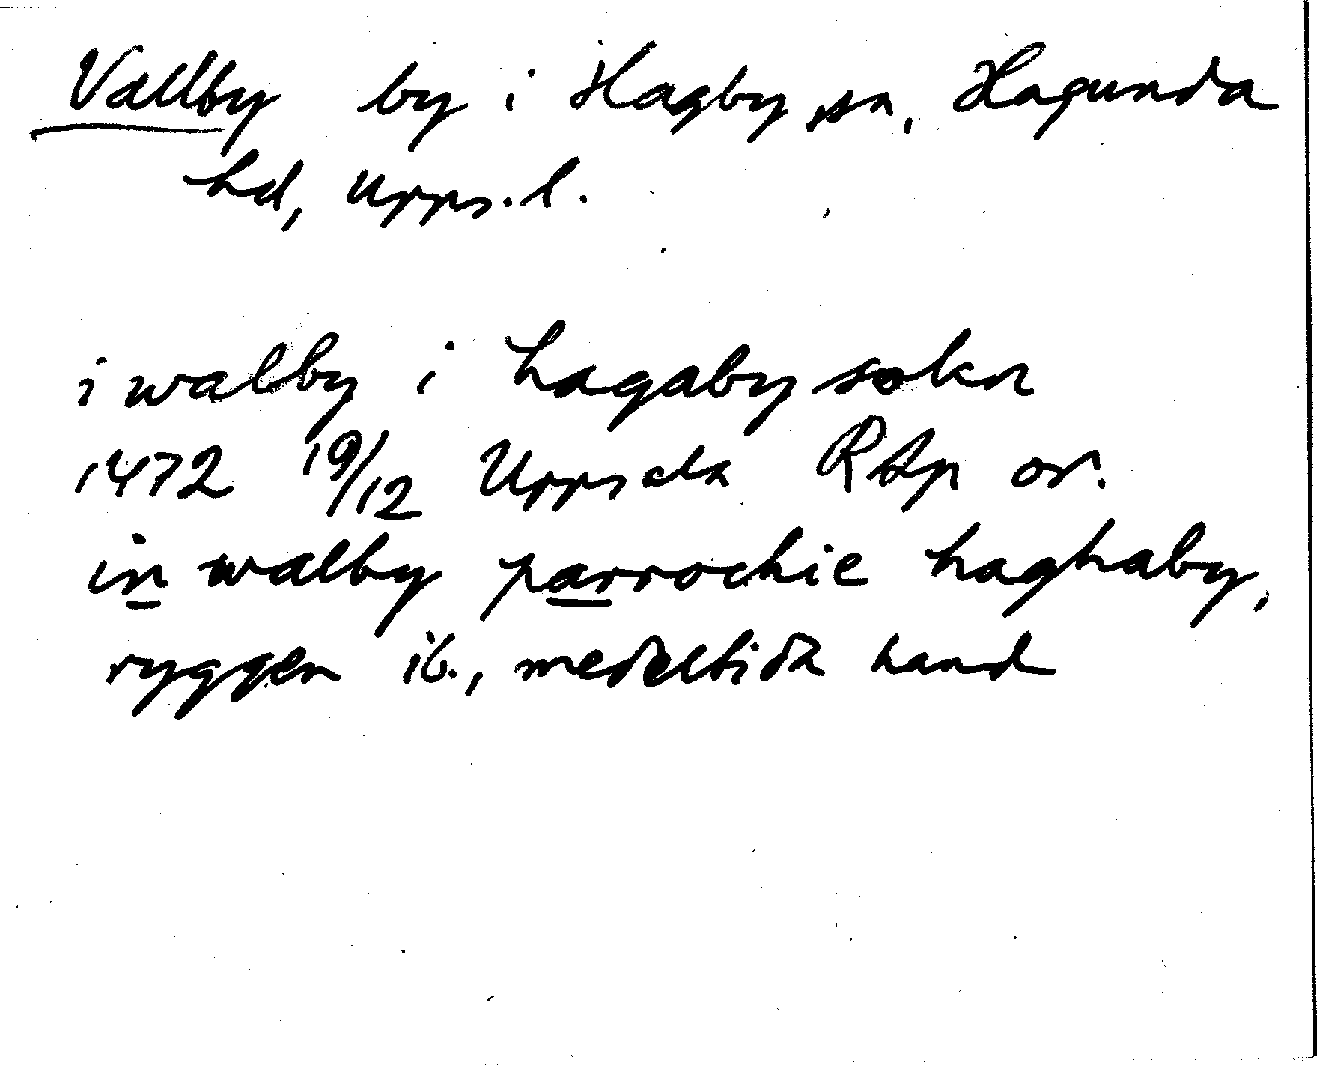 Vallby by i Hagby sn, Hagunda
hd, Upps. l.
i walby i hagaby sokn
1472 19/12 Uppsala RAp or.
in walby parrochie haghaby,
ryggen ib., medeltida hand